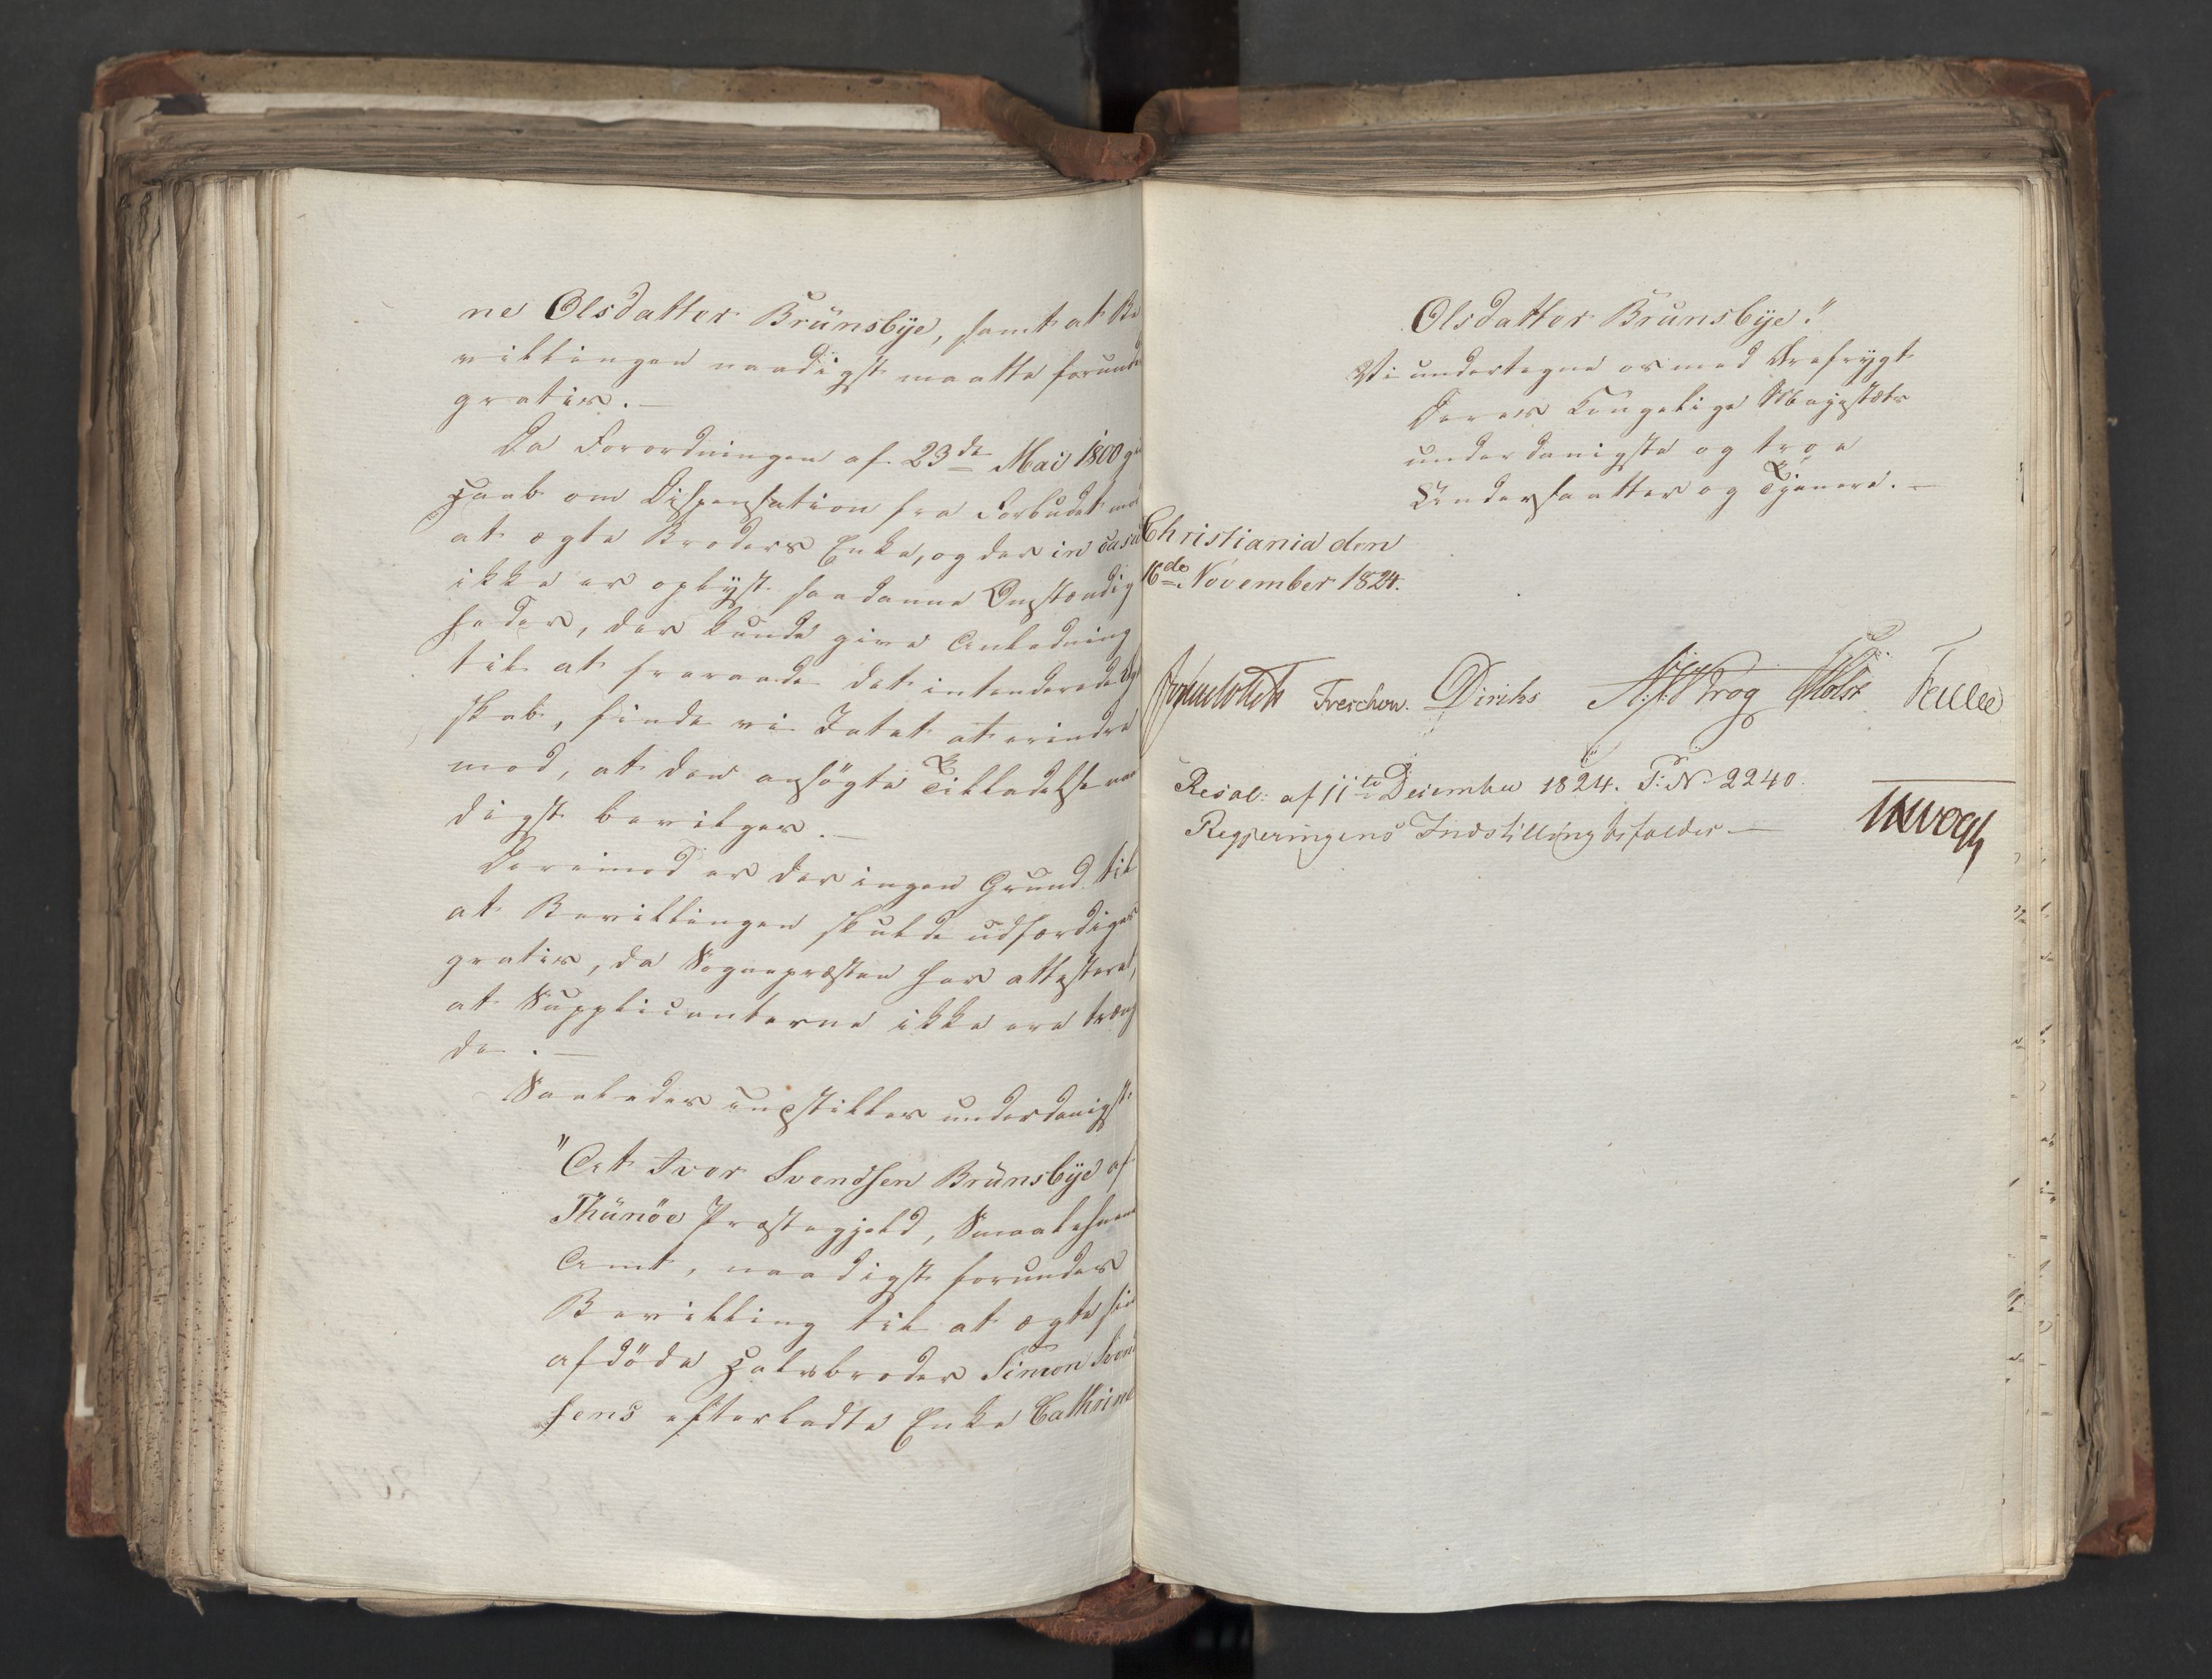 ne Olsdatter Brünsbÿe, samt at Be
villingen naadigst maatte forunde
gratis. —
Da Forordningen af 23de Mai 1800 gi
Haab om Dispensation fra Forbudet mod
at ægte Broders Enke, og der in casu
ikke er oplÿst saadanne Omstændig
heder, der kunde give Anledning
til at fraraade det intenderede Ægt
skab, finde vi Intet at erindre
mod, at den ansögte Tilladelse naa
digst bevilges. —
Derimod er der ingen Grund til
at Bevillingen skulde udfærdiges
gratis, da Sognepræsten har attesteret,
at Supplicanterne ikke ere træng
de. —
Saaledes indstilles underdanigst:
"At Iver Svendsen Brünsbÿe af
Thünöe Præstegjeld, Smaalehnenes
Amt, naadigst forundes
Bevilling til at ægte sin
afdöde Halvbroder Simon Svend
sens efterladte Enke Cathrine
Olsdatter Brunsbÿe."
Vi undertegne os med Ærefrÿgt
Deres Kongelige Majestæts
underdanigste og troe
Undersaatter og Tjenere. —
Christiania den
16de November 1824.
Treschow. Diriks Krog Holst
Resol: af 11te December 1824. P: N 2240.
Regjeringens Indstilling bifaldes —